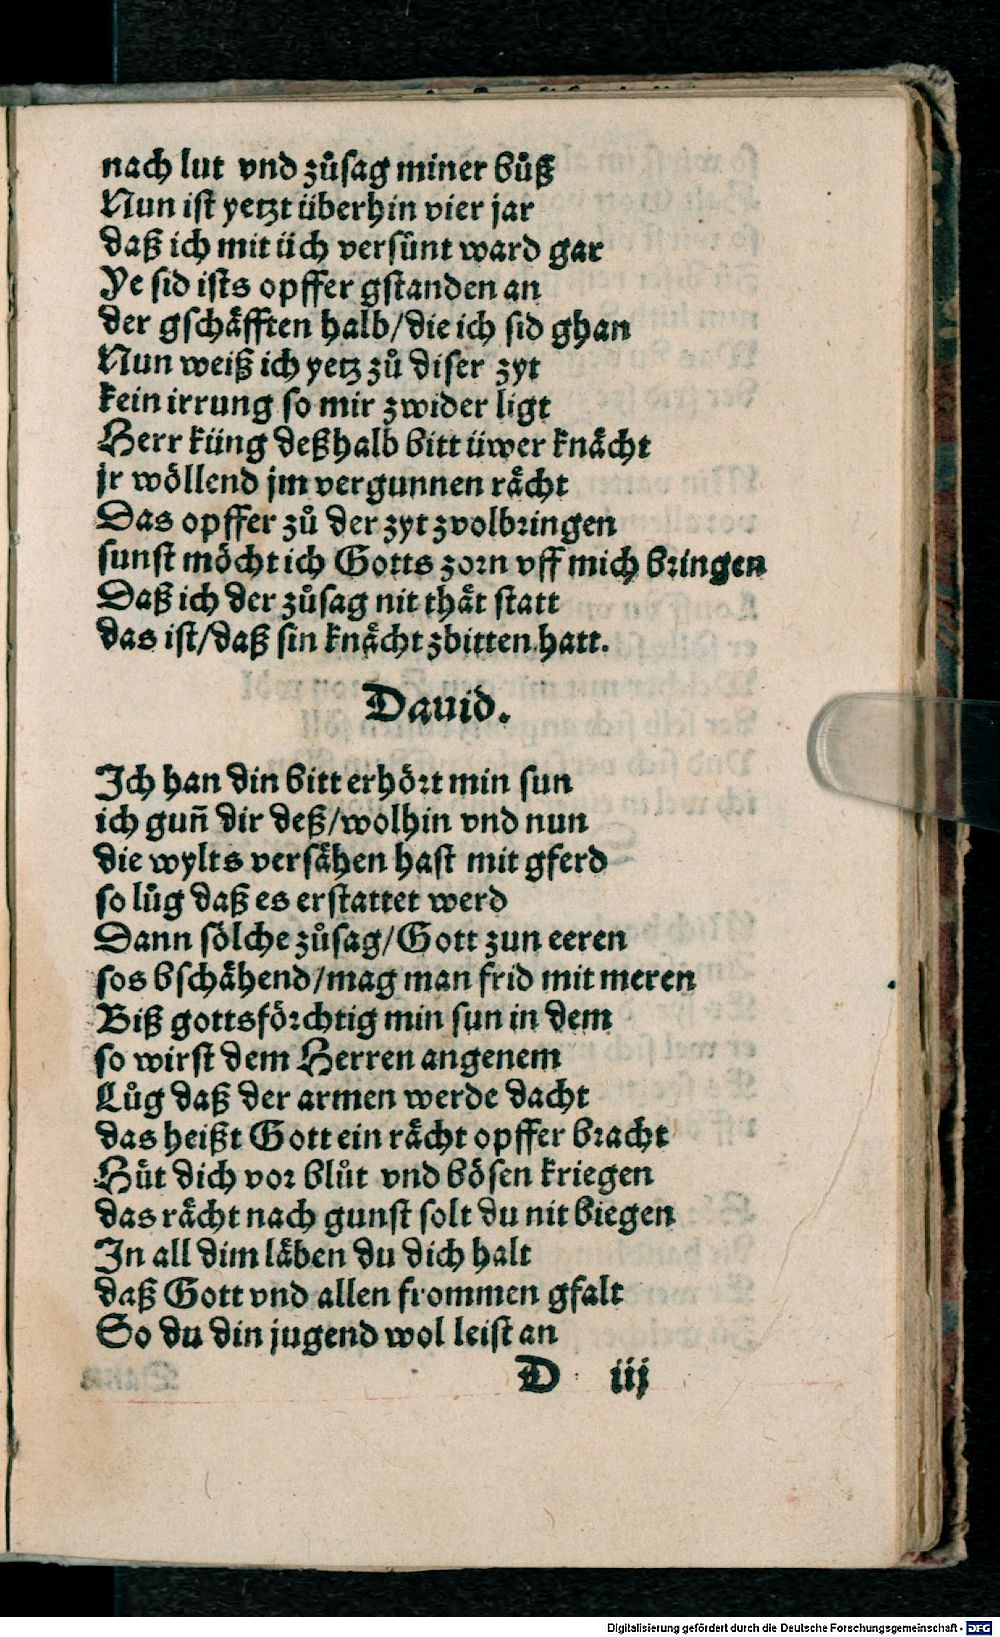 nach lut vnd zůsag miner bůß
Nun ist yetzt überhin vier jar
daß ich mit üch versünt ward gar
Ye sid ists opffer gstanden an
der gschäfften halb/die ich sid ghan
Nun weiß ich yetz zů diser zyt
kein irrung so mir zwider ligt
Herr küng deßhalb bitt üwer knächt
jr wöllend jm vergunnen rächt
Das opffer zů der zyt zvolbringen
sunst möcht ich Gotts zorn vff mich bringen
Daß ich der zůsag nit thät statt
das ist/daß sin knächt zbitten hatt.
Dauid.
Ich han din bitt erhört min sun
ich guñ dir deß/wolhin vnd nun
die wylts versähen hast mit gferd
so lůg daß es erstattet werd
Dann sölche zůsag/Gott zun eeren
sos bschähend/mag man frid mit meren
Biß gottsförchtig min sun in dem
so wirst dem Herren angenem
Lůg daß der armen werde dacht
das heißt Gott ein rächt opffer bracht
Hüt dich vor blůt vnd bösen kriegen
das rächt nach gunst solt du nit biegen
In all dim läben du dich halt
daß Gott vnd allen frommen gfalt
So du din jugend wol leist an
D iij
Digitalisierung gefördert durch die Deutsche Forschungsgemeinschaft - DFG